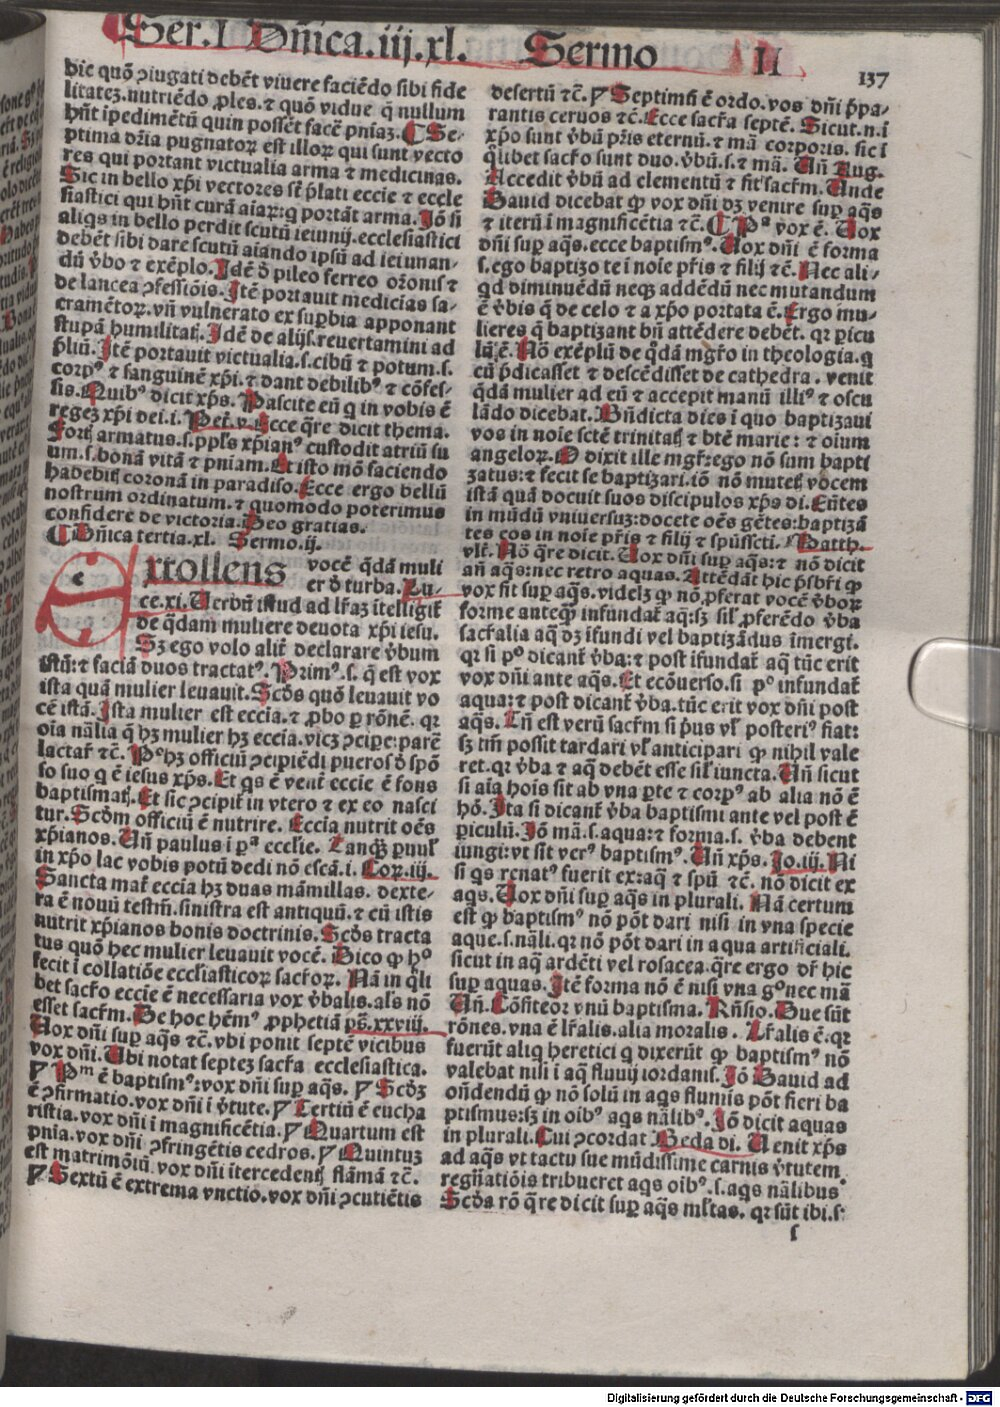 Ser.I Dñica.iij.xl. Sermo II
137
hic quõ ɔiugati debẽt viuere faciẽdo sibi fide
litateʒ.nutriẽdo ꝓles.⁊ quõ vidue q̃ nullum
hñt ipedimẽtũ quin possẽt facẽ pniaʒ. Se-
ptima dr̃ia pugnatoꝝ est illoꝝ qui sunt vecto
res qui portant victualia arma ⁊ medicinas.
Sic in bello xp̃i vectores sũt p̃lati eccie ⁊ eccle
siastici qui hñt curã aiaꝝ:q portãt arma. Jõ si
aliqs in bello perdit scutũ ieiunij.ecclesiastici
debẽt sibi dare scutũ aiando ipsũ ad ieiunan-
dũ v̓bo ⁊ exẽplo. Jdẽ d̓ pileo ferreo or̃onis ⁊
de lancea ɔfessiõis. Jtẽ portauit medicias sa-
cramẽtoꝝ.vñ vulnerato ex suꝑbia apponant
stupã humilitatꝭ. Jdẽ de alijs.reuertamini ad
p̃liũ. Jtẽ portauit victualia.s.cibũ ⁊ potum.s.
corpꝰ ⁊ sanguinẽ xp̃i.⁊ dant debilibꝰ ⁊ cõfes-
sis. Quibꝰ dicit xp̃s. Pascite eũ q in vobis ẽ
regeʒ xp̃i dei.i. Pet̃.v. Ecce q̃re dicit thema.
Fortꝭ armatus.s.pp̃ls xp̃ianꝰ custodit atriũ su
um.s.bonã vitã ⁊ pniam. Et isto mõ faciendo
habebitꝭ coronã in paradiso. Ecce ergo bellũ
nostrum ordinatum.⁊ quomodo poterimus
confidere de victoria. Deo gratias.
Dñica tertia.xl. Sermo.ij.
Extollens vocẽ q̃dã muli
er d̓ turba. Lu-
ce.xi. Verbũ istud ad lr̃aʒ ĩtelligit̃
de q̃dam muliere deuota xp̃i iesu.
Sʒ ego volo alit̃ declarare v̓bum
istũ:⁊ faciã duos tractatꝰ. Primꝰ.s.q̃ est vox
ista quã mulier leuauit. Scd̓s quõ leuauit vo
cẽ istã. Jsta mulier est eccia.⁊ ꝓbo ꝑ rõnẽ.qꝛ
oĩa nãlia q̃ hʒ mulier hʒ eccia.vicʒ ɔcipe:parẽ
lactar̃ ⁊c̃. Pꝰ hʒ officiũ ɔcipiẽdi pueros d̓ spõ
so suo q ẽ iesus xp̃s. Et qs ẽ vent̃ eccie ẽ fons
baptismatꝭ. Et sic ɔcipit̃ in vtero ⁊ ex eo nasci
tur. Scd̓m officiũ ẽ nutrire. Eccia nutrit oẽs
xp̃ianos. Vñ paulus i pª ecclie. Tanq̃ʒ ꝑuul̓
in xp̃o lac vobis potũ dedi nõ escã.i. Coꝝ.iij.
Sancta mat̃ eccia hʒ duas mãmillas. dexte-
ra ẽ nouũ testm̃.sinistra est antiquũ.⁊ cũ istis
nutrit xp̃ianos bonis doctrinis. Scd̓s tracta
tus quõ hec mulier leuauit vocẽ. Dico ꝙ hͦ
fecit i collatiõe ecclesiasticoꝝ sacr̃oꝝ. Nã in q̃li
bet sacr̃o eccie ẽ necessaria vox v̓balis.als nõ
esset sacr̃m. De hoc hẽmꝰ ꝓphetiã ps̃.xxviij.
Vox dñi suꝑ aq̃s ⁊c̃.vbi ponit septẽ vicibus
vox dñi. Vbi notat septeʒ sacr̃a ecclesiastica.
Pᵐ ẽ baptismꝰ:vox dñi suꝑ aq̃s. Scd̓ʒ
ẽ ɔfirmatio.vox dñi i v̓tute. Tertiũ ẽ eucha
ristia.vox dñi i magnificẽtia. Quartum est
pnia.vox dñi ɔfringẽtis cedros. Quintuʒ
est matrimõiũ.vox dñi itercedentꝭ flãmã ⁊c̃.
Sextũ ẽ extrema vnctio.vox dñi ɔcutiẽtis
desertũ ⁊c̃. Septimũ ẽ ordo.vox dñi p̃pa-
rantis ceruos ⁊c̃. Ecce sacr̃a septẽ. Sicut.n.i
xp̃o sunt v̓bũ pr̃is eternũ.⁊ mã corporis. sic i
q̃libet sacr̃o sunt duo.v̓bũ.s.⁊ mã. Vñ Aug.
Accedit v̓bũ ad elementũ ⁊ fit sacr̃m. Unde
Dauid dicebat ꝙ vox dñi dʒ venire suꝑ aq̃s
⁊ iterũ i magnificẽtia ⁊c̃. Pª vox ẽ. Vox
dñi suꝑ aq̃s.ecce baptismꝰ. Vox dñi ẽ forma
s.ego baptizo te i noĩe pr̃is ⁊ filij ⁊c̃. Nec ali-
qd diminuẽdũ neqʒ addẽdũ nec mutandum
ẽ v̓bis q̃ de celo ⁊ a xp̃o portata ẽ. Ergo mu-
lieres q̃ baptizant bñ attẽdere debẽt. qꝛ picu
lũ ẽ. Nõ exẽplũ de q̃dã mgr̃o in theologia.q
cũ p̃dicasset ⁊ descẽdisset de cathedra. venit
q̃dã mulier ad eũ ⁊ accepit manũ illiꝰ ⁊ oscu
lãdo dicebat. Bñdicta dies i quo baptizaui
vos in noĩe sctẽ trinitatꝭ ⁊ btẽ marie: ⁊ oĩum
angeloꝝ. O dixit ille mgr̃:ego nõ sum bapti
zatus:⁊ fecit se baptizari.iõ nõ mutetꝭ vocem
istã quã docuit suos discipulos xp̃s di. Eũtes
in mũdũ vniuersuʒ:docete oẽs gẽtes:baptizã
tes eos in noĩe pr̃is ⁊ filij ⁊ spũssct̃i. Matth.
vlt̃. Nõ q̃re dicit. Vox dñi suꝑ aq̃s:⁊ nõ dicit
añ aq̃s:nec retro aquas. Attẽdãt hic p̃sbr̃i ꝙ
vox sit suꝑ aq̃s.videlʒ ꝙ nõ ꝓferat vocẽ v̓boꝝ
forme anteq̃ʒ infundat̃ aq̃:sʒ sil̓ ꝓferẽdo v̓ba
sacr̃alia aq̃ dʒ ĩfundi vel baptizãdus ĩmergi.
qꝛ si pꝰ dicant̃ v̓ba:⁊ post ĩfundat̃ aq̃ tũc erit
vox dñi ante aq̃s. Et ecõuerso.si pꝰ infundat̃
aqua:⁊ post dicant̃ v̓ba.tũc erit vox dñi post
aq̃s. Tñ est verũ sacr̃m si p̓us vl̓ posteriꝰ fiat:
sʒ tm̃ possit tardari vl̓ anticipari ꝙ nihil vale
ret.qꝛ v̓ba ⁊ aq̃ debẽt esse sil̓ iuncta. Vñ sicut
si aĩa hoĩs sit ab vna ꝑte ⁊ corpꝰ ab alia nõ ẽ
hõ. Jta si dicant̃ v̓ba baptismi ante vel post ẽ
piculũ. Jõ mã.s.aqua:⁊ forma.s. v̓ba debent
iungi:vt sit verꝰ baptismꝰ. Vñ xp̃s. Jo.iij. Ni
si qs renatꝰ fuerit ex:aq̃ ⁊ spũ ⁊c̃. nõ dicit ex
aqs. Vox dñi suꝑ aq̃s in plurali. Nã certum
est ꝙ baptismꝰ nõ põt dari nisi in vna specie
aque.s.nãli.qꝛ nõ põt dari in aqua artificiali.
sicut in aq̃ ardẽti vel rosacea.q̃re ergo dr̃ hic
suꝑ aquas. Jtẽ forma nõ ẽ nisi vna gͦ nec mã
Vñ. Cõfiteor vnũ baptisma. Rñsio. Due sũt
rõnes.vna ẽ lr̃alis.alia moralis. Lr̃alis ẽ.qꝛ
fuerũt aliq heretici q dixerũt ꝙ baptismꝰ nõ
valebat nisi i aq̃ fluuij iordanis. Jõ Dauid ad
oñdendũ ꝙ nõ solũ in aqs flumĩs põt fieri ba
ptismus:sʒ in oĩbꝰ aqs nãlibꝰ. Jõ dicit aquas
in plurali. Cui ɔcordat Beda di. Uenit xp̃s
ad aq̃s vt tactu sue mũdissime carnis v̓tutem
regñatiõis tribueret aqs oĩbꝰ.s.aqs nãlibus
Scd̓a rõ q̃re dicit suꝑ aq̃s ml̓tas. qꝛ sũt ibi.s:
s
Digitalisierung gefördert durch die Deutsche Forschungsgemeinschaft - DFG